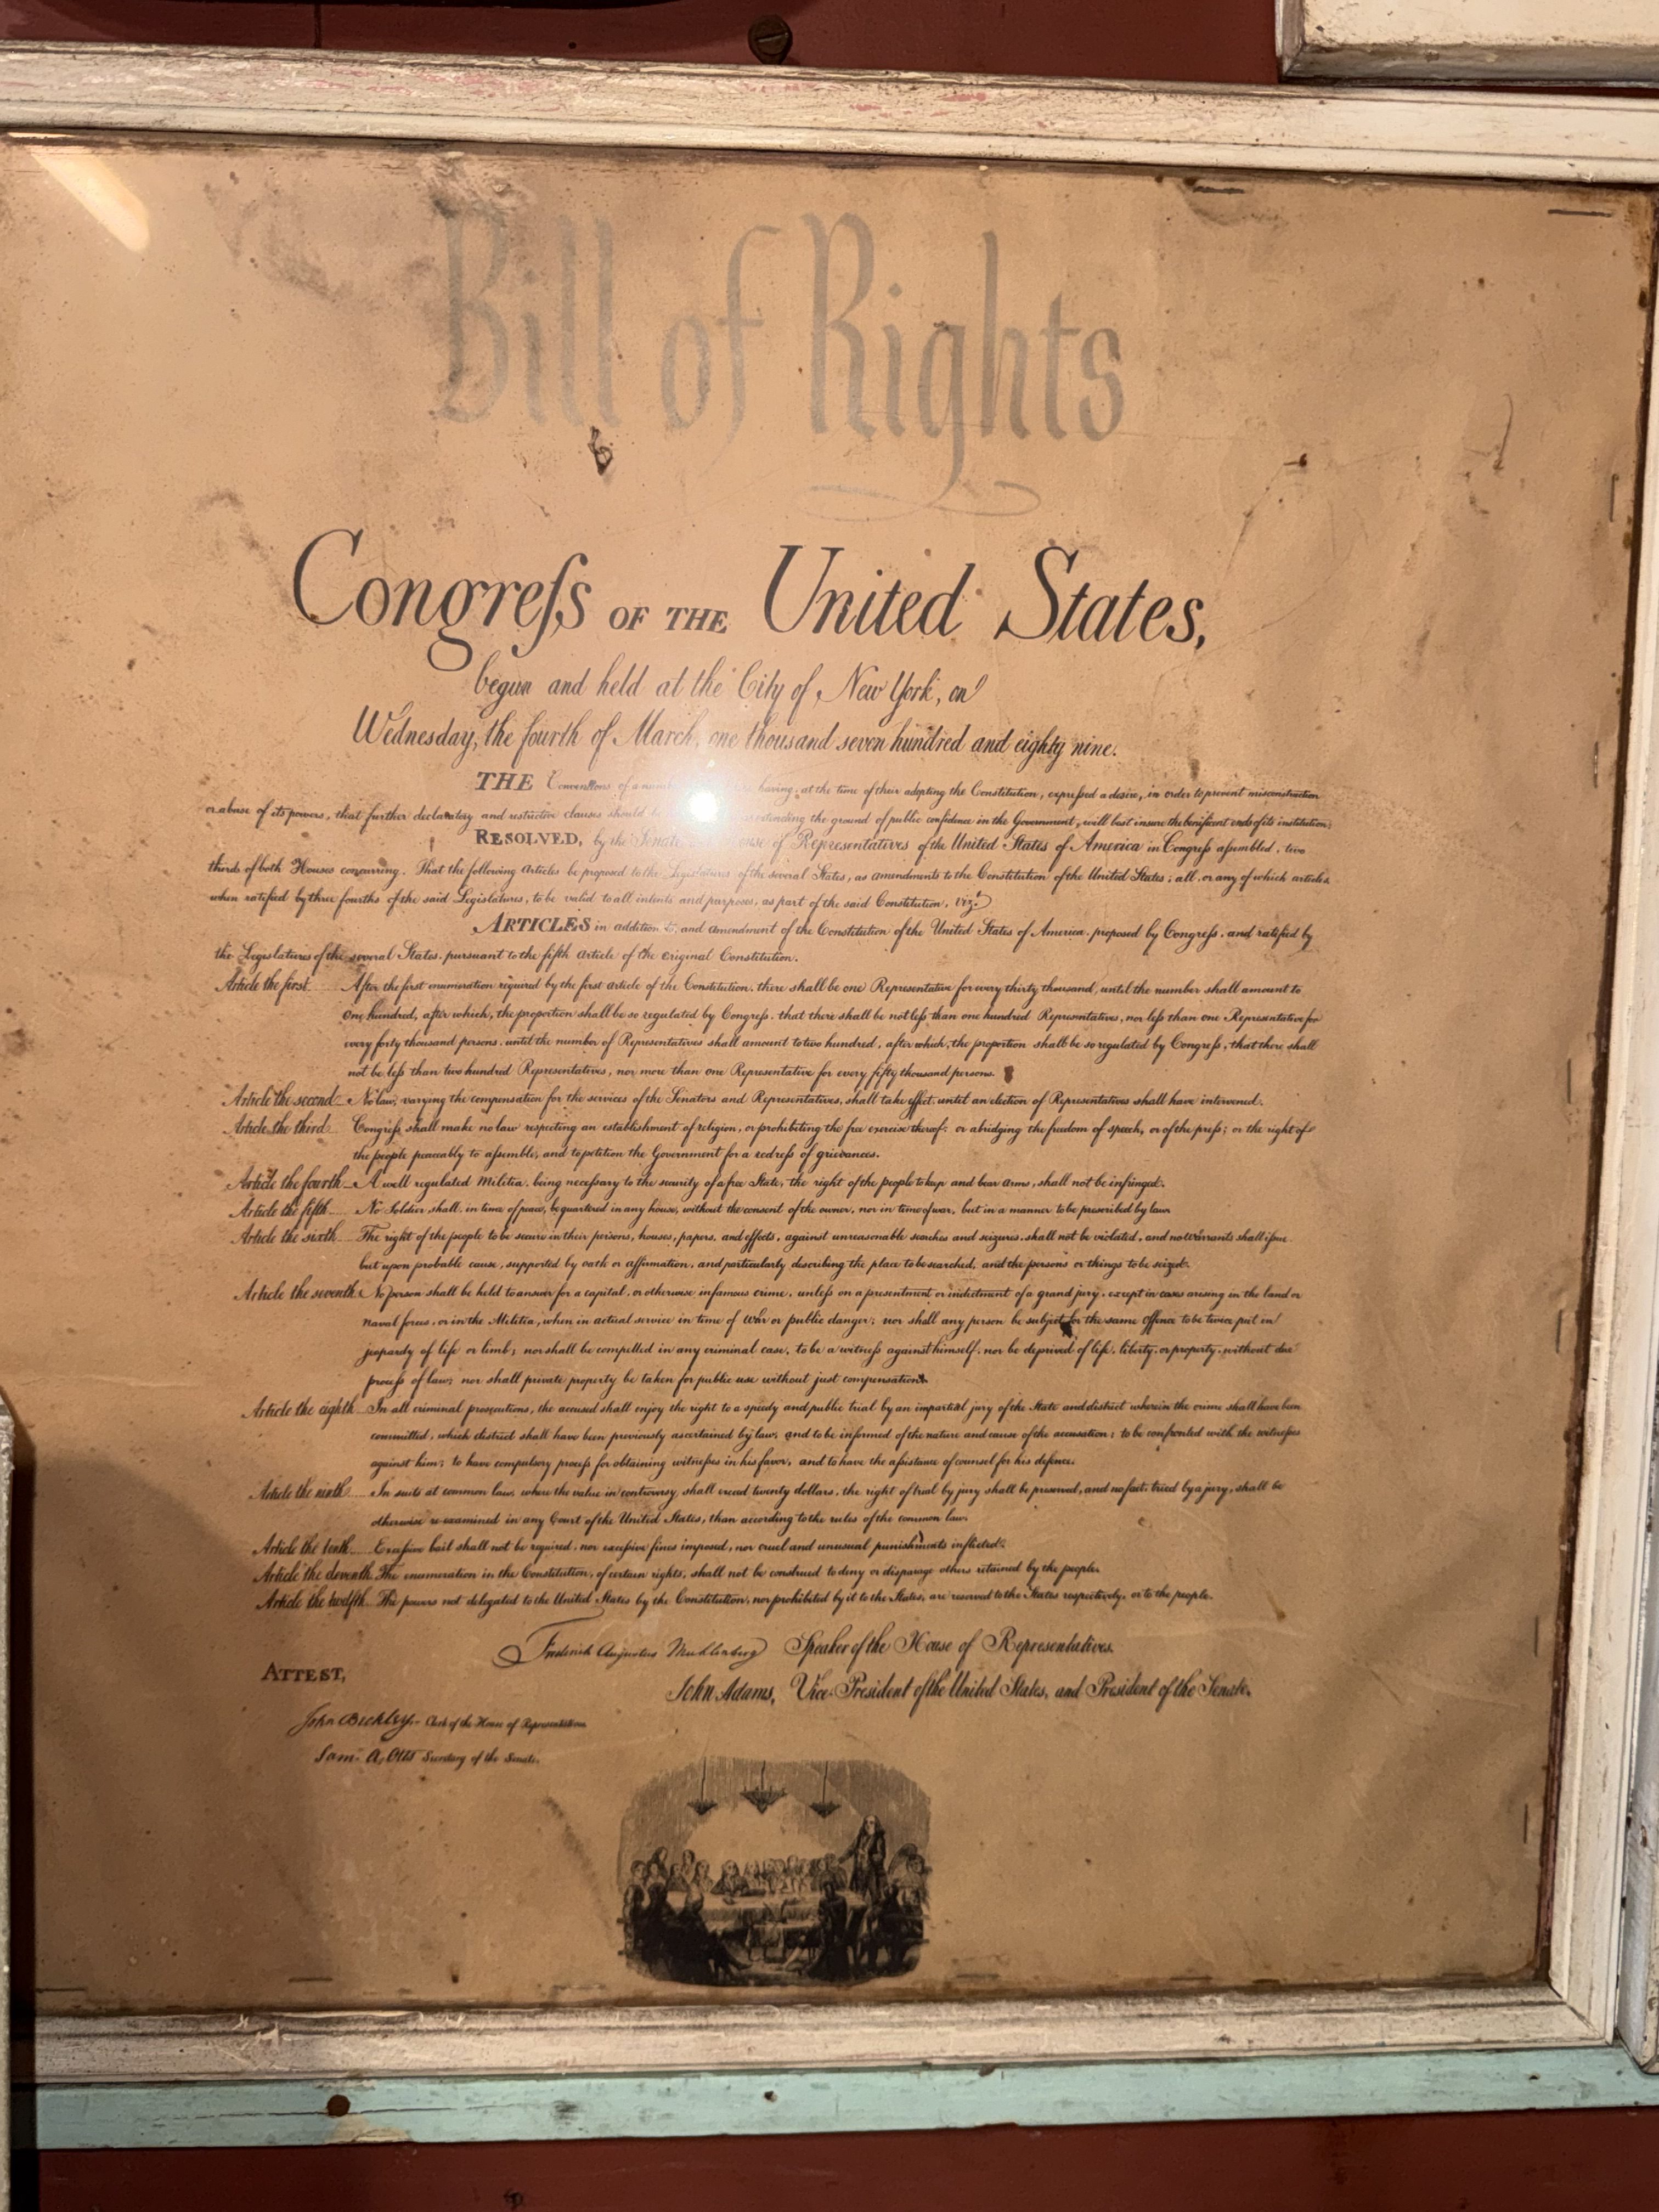 Bill of Rights
Congreſs OF THE United States,
begun and held at the City of New York, on
Wednesday, the fourth of March, one thousand seven hundred and eighty nine.
THE Conventions of a having, at the time of their adopting the Constitution, expreſsed a desire, in order to prevent misconstruction
or abuse of its powers, that further declaratory and restrictive clauses should be extending the ground of public confidence in the Government, will best insure the benificent ends of its institution;
RESOLVED, by the Senate House of Representatives of the United States of America in Congreſs aſsembled, two
thirds of both Houses concurring. That the following Articles be proposed to the Legislatures of the several States, as amendments to the Constitution of the United States; all, or any of which articles,
when ratified by three fourths of the said Legislatures, to be valid to all intents and purposes, as part of the said Constitution, viz.
ARTICLES in addition to, and amendment of the Constitution of the United States of America, proposed by Congreſs, and ratified by
the Legislatures of the several States, pursuant to the fifth Article of the Original Constitution.
Article the first. After the first enumeration required by the first Article of the Constitution, there shall be one Representative for every thirty thousand, until the number shall amount to
one hundred, after which, the proportion shall be so regulated by Congreſs, that there shall be not leſs than one hundred Representatives, nor leſs than one Representative for
every forty thousand persons, until the number of Representatives shall amount to two hundred, after which, the proportion shall be so regulated by Congreſs, that there shall
not be leſs than two hundred Representatives, nor more than one Representative for every fifty thousand persons.
Article the second. No law, varying the compensation for the services of the Senators and Representatives, shall take effect, until an election of Representatives shall have intervened.
Article the third. Congreſs shall make no law respecting an establishment of religion, or prohibiting the free exercise thereof; or abridging the freedom of speech, or of the preſs; or the right of
the people peaceably to aſsemble, and to petition the Government for a redreſs of grievances.
Article the fourth. A well regulated Militia, being neceſsary to the security of a free State, the right of the people to keep and bear Arms, shall not be infringed.
Article the fifth. No Soldier shall, in time of peace, be quartered in any house, without the consent of the owner, nor in time of war, but in a manner to be prescribed by law.
Article the sixth. The right of the people to be secure in their persons, houses, papers, and effects, against unreasonable searches and seizures, shall not be violated, and no Warrants shall iſsue
but upon probable cause, supported by oath or affirmation, and particularly describing the place to be searched, and the persons or things to be seized.
Article the seventh. No person shall be held to answer for a capital, or otherwise infamous crime, unleſs on a presentment or indictment of a grand jury, except in cases arising in the land or
naval forces, or in the Militia, when in actual service in time of War or public danger; nor shall any person be subject for the same offence to be twice put in
jeopardy of life or limb; nor shall be compelled in any criminal case, to be a witneſs against himself, nor be deprived of life, liberty, or property, without due
proceſs of law; nor shall private property be taken for public use without just compensation.
Article the eighth. In all criminal prosecutions, the accused shall enjoy the right to a speedy and public trial by an impartial jury of the State and district wherein the crime shall have been
committed, which district shall have been previously ascertained by law, and to be informed of the nature and cause of the accusation; to be confronted with the witneſses
against him; to have compulsory proceſs for obtaining witneſses in his favor, and to have the aſsistance of counsel for his defence.
Article the ninth. In suits at common law, where the value in controversy shall exceed twenty dollars, the right of trial by jury shall be preserved, and no fact, tried by a jury, shall be
otherwise re-examined in any Court of the United States, than according to the rules of the common law.
Article the tenth. Exceſsive bail shall not be required, nor exceſsive fines imposed, nor cruel and unusual punishments inflicted.
Article the eleventh. The enumeration in the Constitution, of certain rights, shall not be construed to deny or disparage others retained by the people.
Article the twelfth. The powers not delegated to the United States by the Constitution, nor prohibited by it to the States, are reserved to the States respectively, or to the people.
Frederick Augustus Muhlenberg Speaker of the House of Representatives.
ATTEST,
John Adams, Vice-President of the United States, and President of the Senate.
John Beckley, Clerk of the House of Representatives.
Sam. A. Otis Secretary of the Senate.